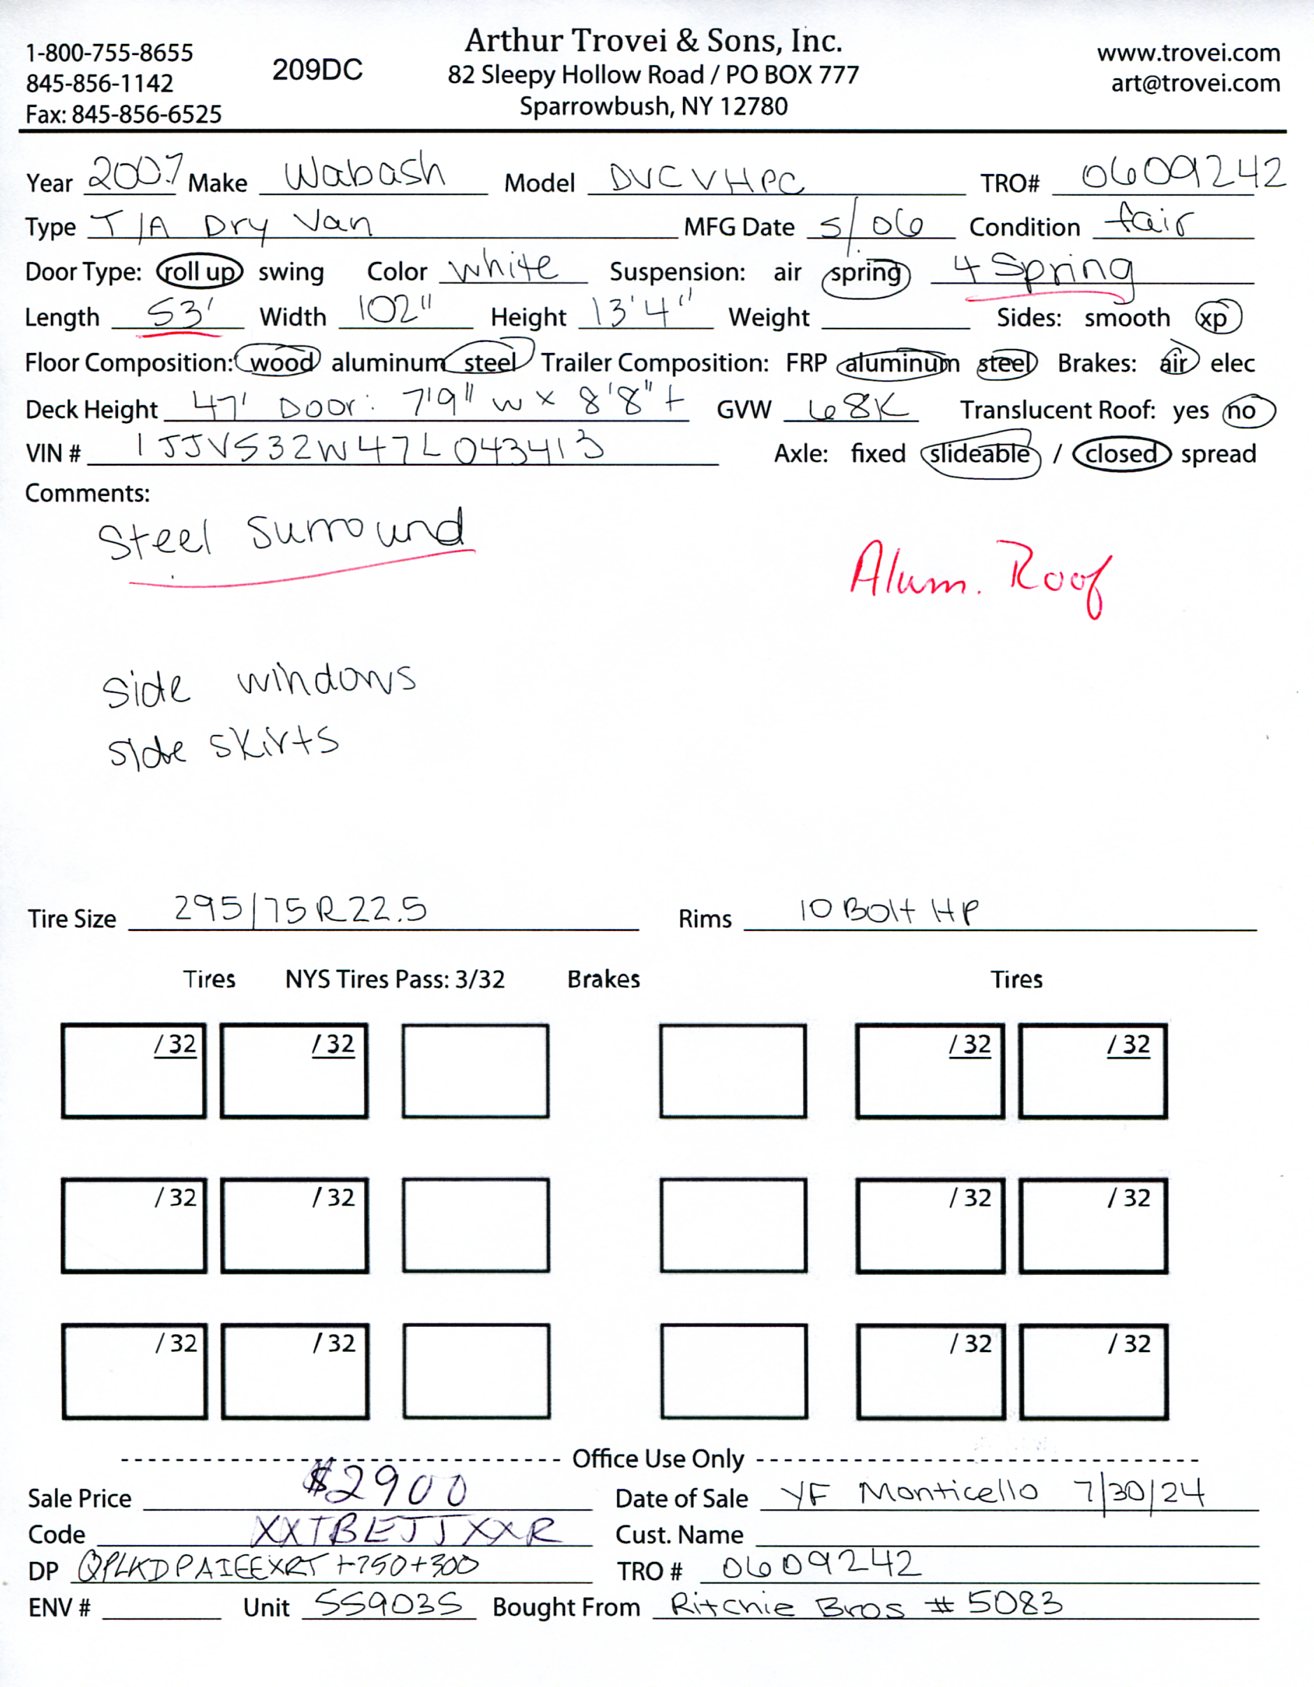 Arthur Trovei & Sons, Inc.
1-800-755-8655 209DC 82 Sleepy Hollow Road / PO BOX 777 www.trovei.com
845-856-1142 Sparrowbush, NY 12780 art@trovei.com
Fax: 845-856-6525
Year 2007 Make Wabash Model DVCVHPC TRO# 0609242
Type T/A Dry Van MFG Date 5/06 Condition fair
Door Type: roll up swing Color white Suspension: air spring 4 Spring
Length 53' Width 102" Height 13'4" Weight Sides: smooth xp
Floor Composition: wood aluminum steel Trailer Composition: FRP aluminum steel Brakes: air elec
Deck Height 47' Door: 7'9" w x 8'8" t GVW 68K Translucent Roof: yes no
VIN # 1JJV532W47L043413 Axle: fixed slideable / closed spread
Comments:
Steel Surround
Alum. Roof
side windows
side skirts
Tire Size 295/75R22.5 Rims 10 Bolt HP
Tires NYS Tires Pass: 3/32 Brakes Tires
/ 32 / 32 / 32 / 32
/ 32 / 32 / 32 / 32
/ 32 / 32 / 32 / 32
Office Use Only
Sale Price $2900 Date of Sale YF Monticello 7/30/24
Code XXTBEJJXXR Cust. Name
DP QPLKDPAIEEXRT +750+300 TRO # 0609242
ENV # Unit SS9035 Bought From Ritchie Bros # 5083